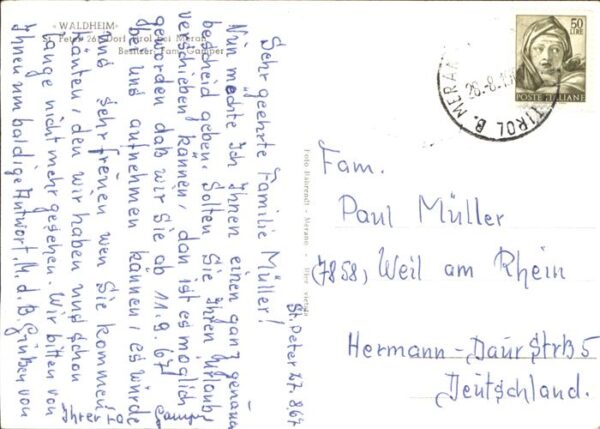 "WALDHEIM"
St. Peter 26, Dorf Tirol bei Meran
Besitzer Fam. Gamper
50
LIRE
POSTE ITALIANE
TIROL B. MERAN
28.-8.
St. Peter 27. 8 67
Sehr geehrte Familie Müller!
Nun mechte Ich Ihnen einen ganz genauen
bescheid geben. Solten Sie Ihren urlaube
verschieben können, dan ist es möglich
geworden daß wir Sie ab 11. 9. 67
be uns aufnehmen können, es würde
uns sehr freuen wen Sie kommen
känten, den wir haben uns schon
lange nicht mehr gesehen. Wir bitten von
Ihnen um baldige Antwort. M. d. B. Grüßen von
Ihrer Fa
Gamper
Foto Bährendt - Merano
Fam.
Paul Müller
(7858) Weil am Rhein
Hermann-Daur Strß 5
Deutschland.